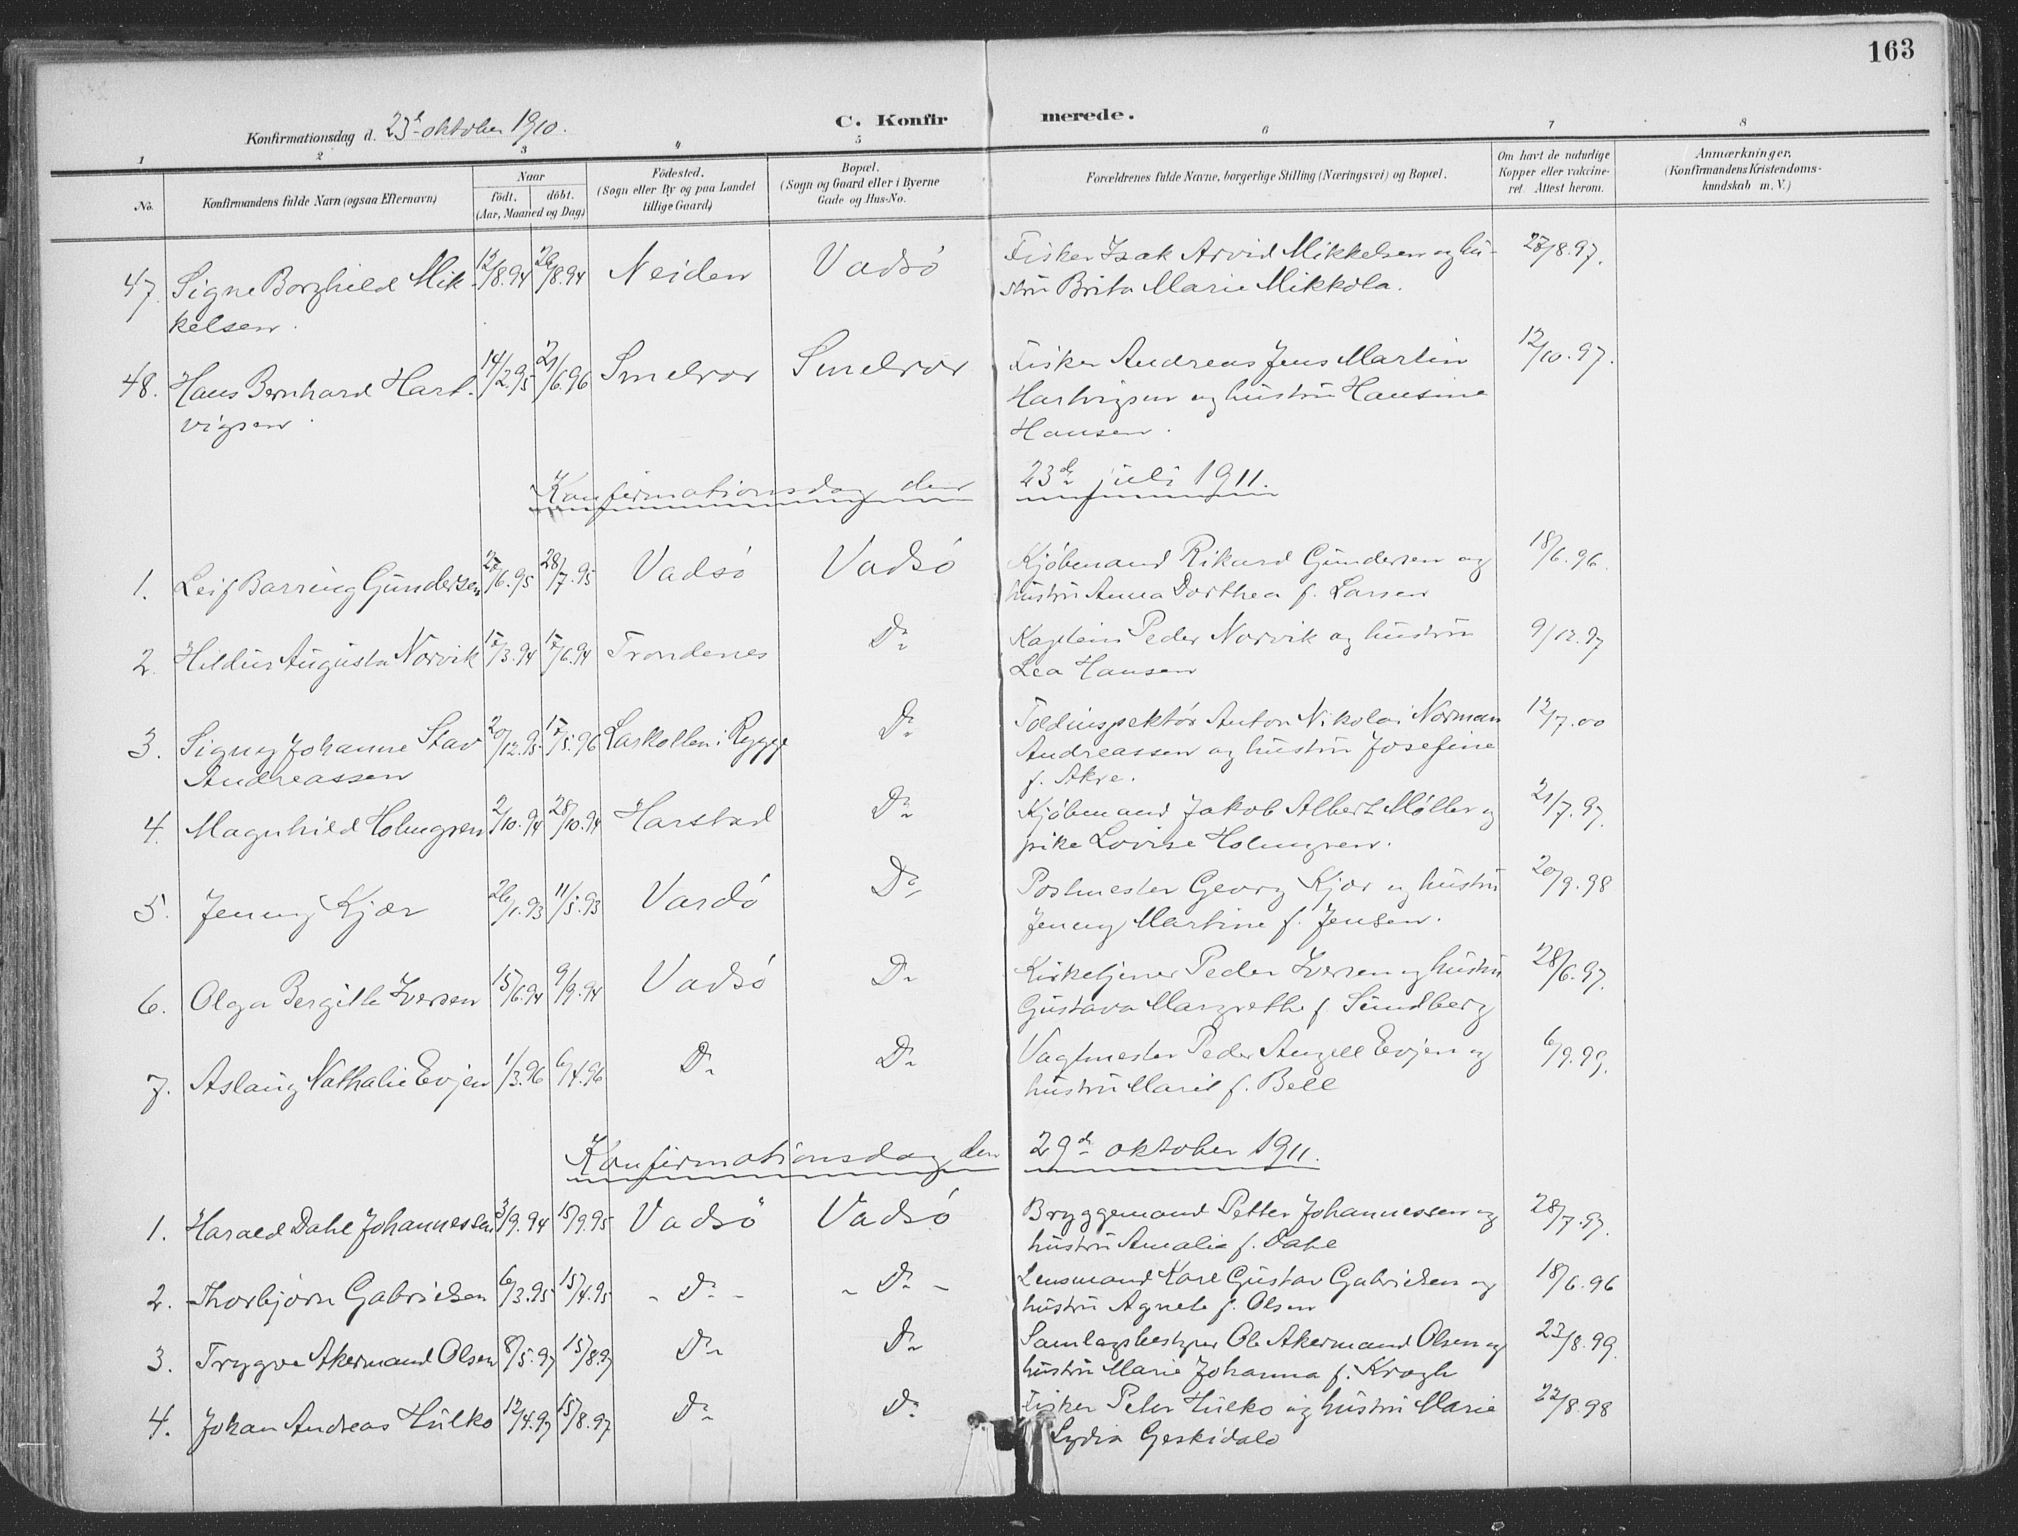 163
Konfirmationsdag d. 23de oktober 1910.
C. Konfirmerede.
1 2 3 4 5 6 7 8
No.
Konfirmandens fulde Navn (ogsaa Efternavn)
Naar
født. døbt.
(Aar, Maaned og Dag)
Fødested.
(Sogn eller By og paa Landet
tillige Gaard)
Bopæl.
(Sogn og Gaard eller i Byerne
Gade og Hus-No.
Forældrenes fulde Navne, borgerlige Stilling (Næringsvei) og Bopæl.
Om havt de naturlige
Kopper eller vaccine-
ret. Attest herom.
Anmærkninger.
(Konfirmandens Kristendoms-
kundskab m. V.)
47. Signe Borghild Mik- 12/8.94 26/8.94 Neiden Vadsö Fisker Isak Arvid Mikkelsen og hu- 28/8.97.
kelsen. stru Brita Marie Mikkola.
48. Hans Bernhard Hart- 14/2.95 21/6.96 Smelror Smelror Fisker Andreas Jens Martin 12/10.97.
vigsen. Hartvigsen og hustru Hansine
Hansen.
Konfirmationsdag den 23de juli 1911.
1. Leif Barring Gundersen 28/7.95 Vadsö Vadsö Kjöbmand Rikard Gundersen og 18/6.96.
hustru Anna Dorthea f. Larsen
2. Hildur Augusta Norvik Trondenes Do Kaptein Peder Norvik og hustru 9/12.97
Lea Hansen
3. Signy Johanne Stav 20/12.95 Larkollen i Rygge Do Toldinspektør Anton Nikolai Norman 12/7.00
Andreassen Andreassen og hustru Josefine
f. Akre.
4. Magnhild Holmgren 2/10.94 28/10.94 Harstad Do Kjöbmand Jakob Albert Møller og 21/7.97.
pike Lovise Holmgren.
5. Jenny Kjær 26/1.93 11/5.93 Vardö Do Postmester Georg Kjær og hustru 20/9.98
Jenny Martine f. Jensen.
6. Olga Bergitte Iversen 15/6.94 9/9.94 Vadsö Do Kirketjener Peder Iversen og hustru 28/6.97.
Gustava Margrethe f. Sundberg
7. Aslaug Nathalie Evjen 1/3.96 6/4.96 Do Do Vagtmester Peder Angell Evjen og 6/9.99.
hustru Marit f. Bell
Konfirmationsdag den 29de oktober 1911.
1. Harald Dahl Johannessen 3/9.94 15/9.95 Vadsö Vadsö Bryggemand Petter Johannessen og 28/7.97.
hustru Amalie f. Dahl
2. Thorbjörn Gabrielsen 6/3.95 15/4.95 - Do - - Do - Lensmand Karl Gustav Gabrielsen og 18/6.96
hustru Agnete f. Olsen
3. Trygve Akermand Olsen 8/5.97 15/8.97 Do Do Samlagsbestyrer Ole Akermand Olsen og 23/8.99.
hustru Marie Johanna f. Kragh
4. Johan Andreas Hulko 12/4.97 15/8.97 Do Do Fisker Peter Hulko og hustru Marie 22/8.98
Lydia Geskidalo